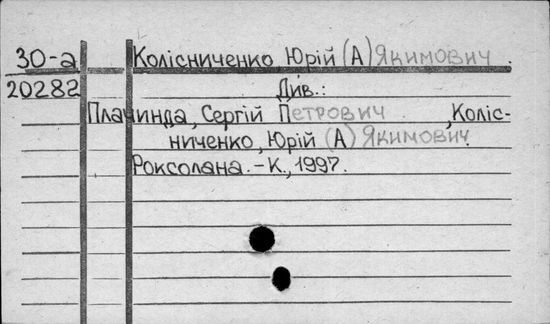 30-а Колісниченко Юрій (А) Якимович.
20282 Див.:
Плачинда, Сергій Петрович, Коліс-
ниченко, Юрій (А) Якимович
Роксолана. - К., 1997.